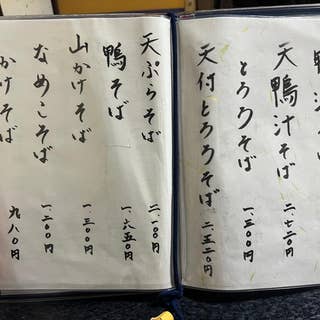 鴨汁そば
天鴨汁そば 二、七二〇円
とろろそば 一、三〇〇円
天付とろろそば 二、五二〇円
天ぷらそば 二、一〇〇円
鴨そば 一、六五〇円
山かけそば 一、三〇〇円
なめこそば 一、二〇〇円
かけそば 九八〇円